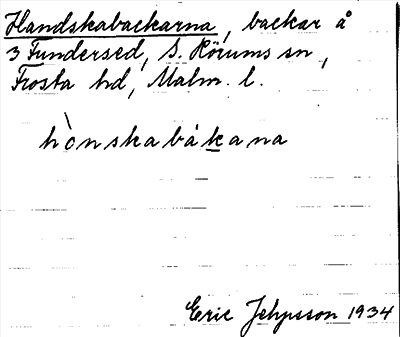 Handskabackarna, backar å
3 Fundersed, S. Rörums sn,
Frosta hd, Malm. l.
hònskabákana
Eric Jehpsson 1934